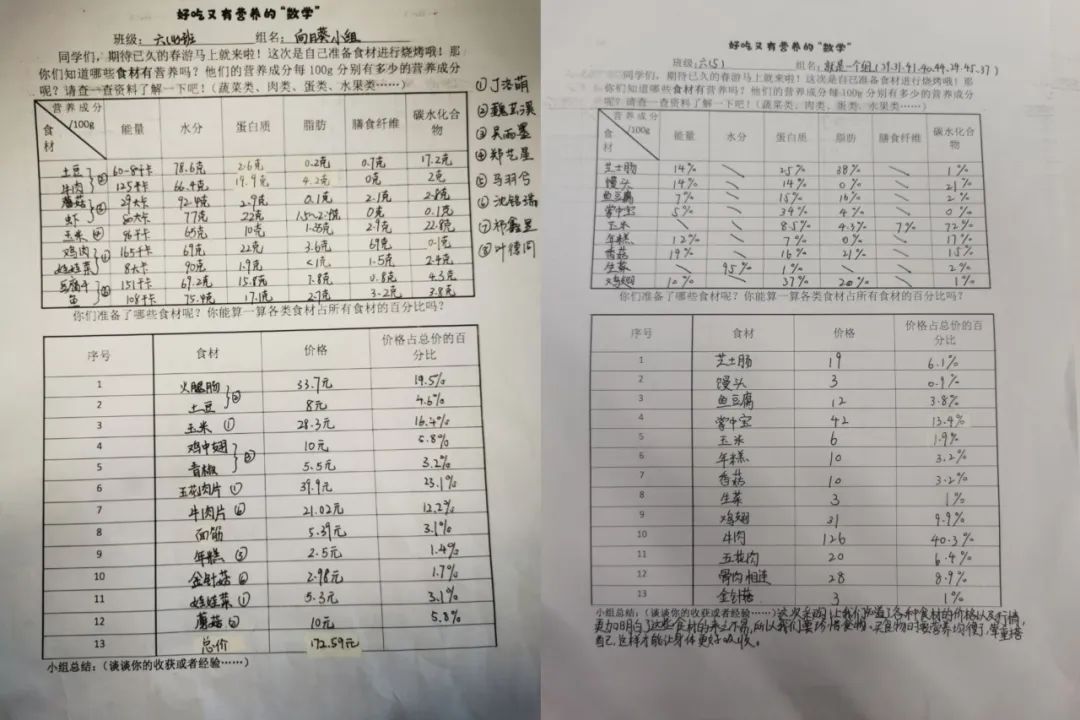 好吃又有营养的“数学”
班级：六(4)班 组名：向日葵小组
同学们，期待已久的春游马上就来啦！这次是自己准备食材进行烧烤哦！那
你们知道哪些食材有营养吗？他们的营养成分每 100g 分别有多少的营养成分
呢？请查一查资料了解一下吧！（蔬菜类、肉类、蛋类、水果类……）
营养成分/100g 食材 能量 水分 蛋白质 脂肪 膳食纤维 碳水化合物
土豆 60-80千卡 78.6克 2.6克 0.2克 0.7克 17.2克
牛肉 125千卡 66.4克 19.9克 4.2克 0克 2克
蘑菇 29大卡 92.4克 2.9克 0.1克 2.1克 2.8克
虾 80大卡 77克 22克 0克 0.1克
玉米 96千卡 65克 10克 2.9克 22.8克
鸡肉 165千卡 69克 22克 3.6克 69克 0.1克
娃娃菜 8大卡 90克 1.9克 <1克 1.5克 2.4克
豆腐干 151千卡 69.2克 15.8克 7.8克 0.8克 4.3克
鱼 108千卡 75.4克 17.1克 2.7克 3.2克 3.8克
①丁洛萌
②魏芷溪
③吴雨墨
④郑艺星
⑤马羽兮
⑥沈铭瑞
⑦杨鑫昱
⑧叶德同
你们准备了哪些食材呢？你能算一算各类食材占所有食材的百分比吗？
序号 食材 价格 价格占总价的百分比
1 火腿肠 33.7元 19.5%
2 土豆 8元 4.6%
3 玉米 ① 28.3元 16.4%
4 鸡中翅 10元 5.8%
5 青椒 5.5元 3.2%
6 五花肉片 ① 39.9元 23.1%
7 牛肉片 ⑥ 21.02元 12.2%
8 面筋 5.39元 3.1%
9 年糕 ⑤ 2.5元 1.4%
10 金针菇 2.98元 1.7%
11 娃娃菜 ① 5.3元 3.1%
12 蘑菇 10元 5.8%
13 总价 172.59元
小组总结：（谈谈你的收获或者经验……）
好吃又有营养的“数学”
班级：六(5) 组名：就是一个组(38.31.41.40.44.29.45.37)
同学们，期待已久的春游马上就来啦！这次是自己准备食材进行烧烤哦！那
你们知道哪些食材有营养吗？他们的营养成分每 100g 分别有多少的营养成分
呢？请查一查资料了解一下吧！（蔬菜类、肉类、蛋类、水果类……）
营养成分/100g 食材 能量 水分 蛋白质 脂肪 膳食纤维 碳水化合物
芝士肠 14% 25% 38% 1%
馒头 14% 14% 0% 21%
鱼豆腐 7% 15% 16% 2%
掌中宝 5% 34% 4% 0%
玉米 8.5% 4.3% 7% 72%
年糕 12% 7% 0% 17%
香菇 19% 16% 21% 15%
生菜 95% 1% 2%
鸡翅 12% 37% 20% 1%
你们准备了哪些食材呢？你能算一算各类食材占所有食材的百分比吗？
序号 食材 价格 价格占总价的百分比
1 芝士肠 19 6.1%
2 馒头 3 0.9%
3 鱼豆腐 12 3.8%
4 掌中宝 42 13.4%
5 玉米 6 1.9%
6 年糕 10 3.2%
7 香菇 10 3.2%
8 生菜 3 1%
9 鸡翅 31 9.9%
10 牛肉 126 40.3%
11 五花肉 20 6.4%
12 骨肉相连 28 8.9%
13 金针菇 3 1%
小组总结：（谈谈你的收获或者经验……）这次采购让我们知道了各种食材的价格以及行情，
更加明白了这些食材的来之不易，所以我们要珍惜食物。买食物时要营养均衡，荤素搭
自己，这样才能让身体更好吸收。